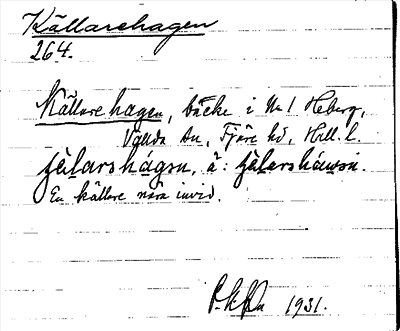 Källarehagen
264.
Källarehagen, backe i N:r 1 Heberg,
Valda sn, Fjäre hd, Hall. l.
çälarshágən, ä: çälarsháwən.
En källare nära invid.
1931.